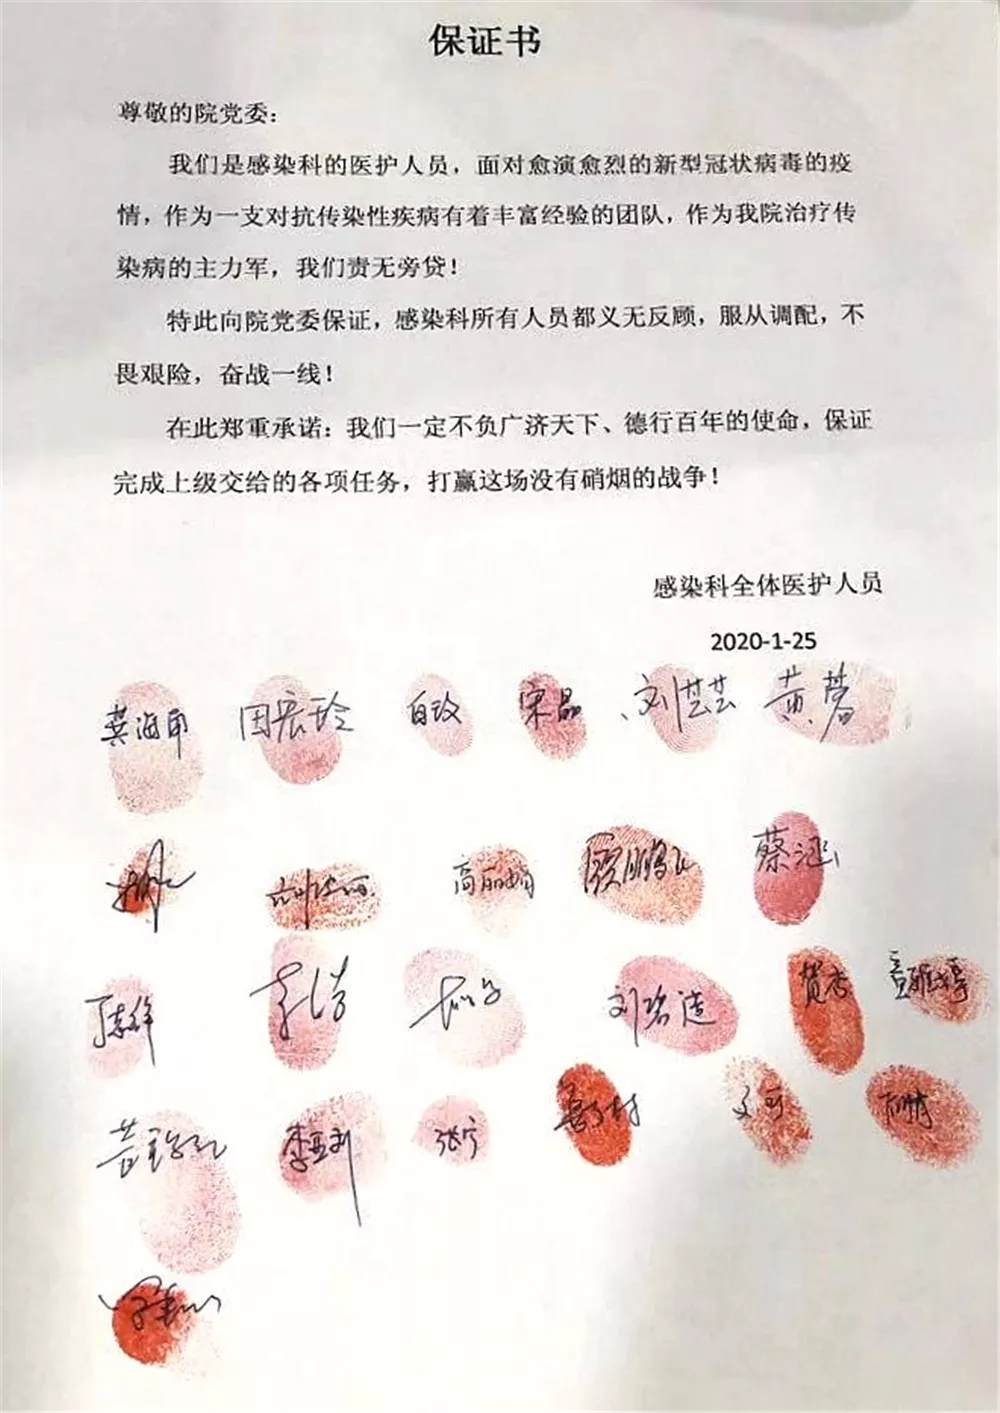 保证书
尊敬的院党委：
我们是感染科的医护人员，面对愈演愈烈的新型冠状病毒的疫
情，作为一支对抗传染性疾病有着丰富经验的团队，作为我院治疗传
染病的主力军，我们责无旁贷！
特此向院党委保证，感染科所有人员都义无反顾，服从调配，不
畏艰险，奋战一线！
在此郑重承诺：我们一定不负广济天下、德行百年的使命，保证
完成上级交给的各项任务，打赢这场没有硝烟的战争！
感染科全体医护人员
2020-1-25
宋晶 刘芸芸
高丽娟 蔡涵
刘碧莲 贺杏
李亚利 张宁 文可